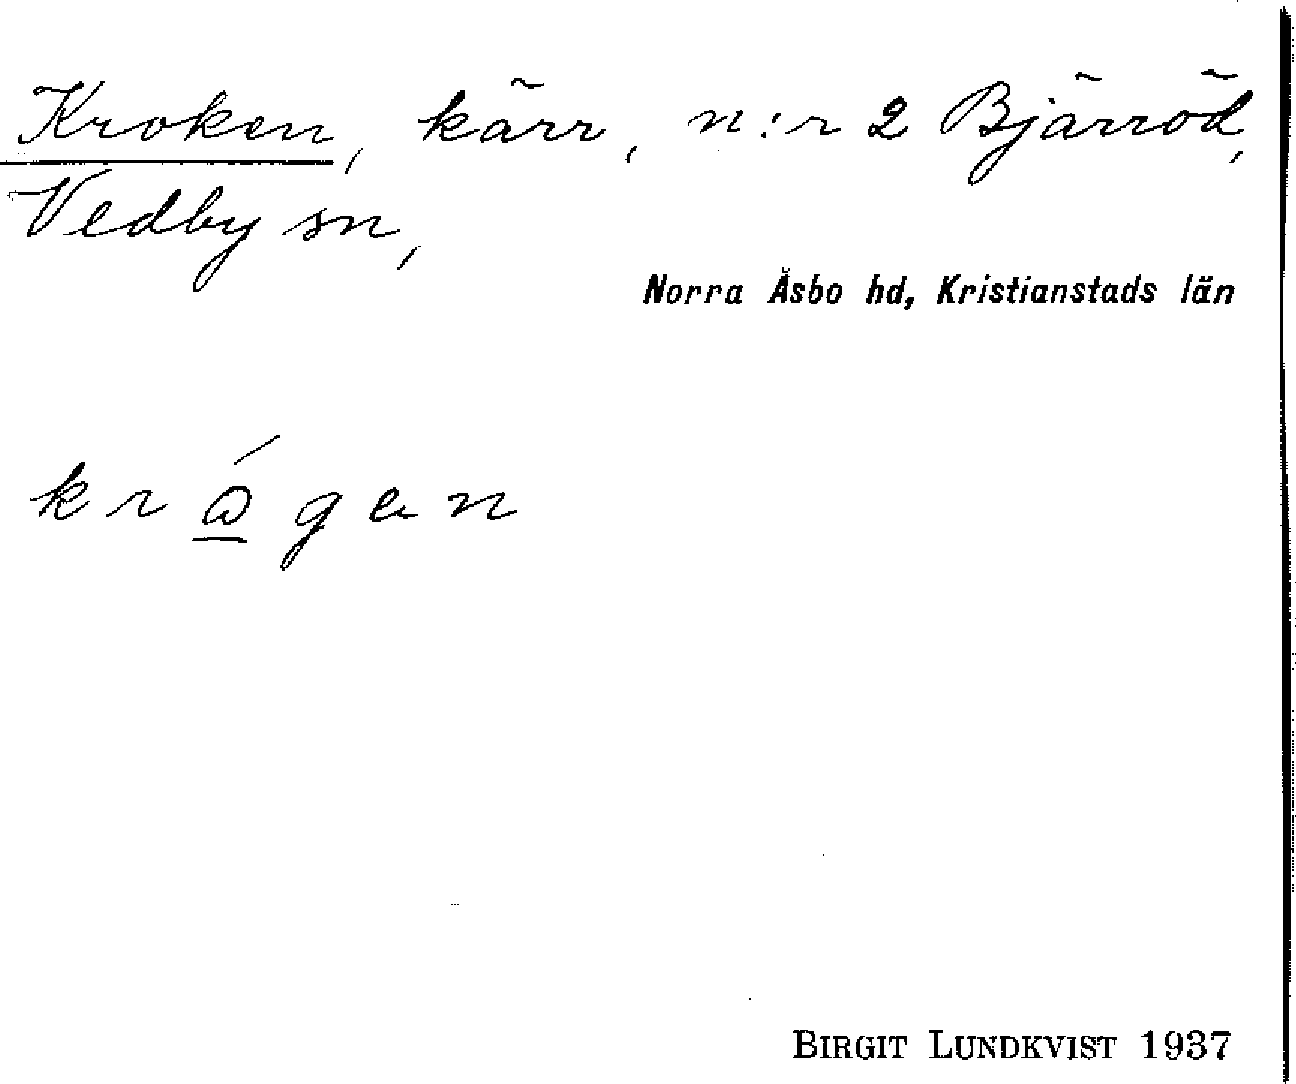 Kroken, kärr, n:r 2 Bjärröd,
Vedby sn,
Norra Åsbo hd, Kristianstads län
BIRGIT LUNDKVIST 1937